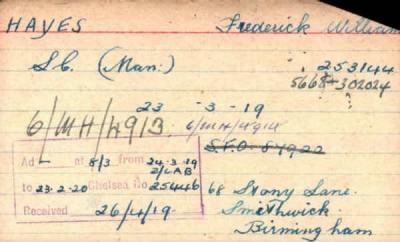 HAYES Frederick William
S.C. (Man:) 253144
5668 302024
23 - 3 - 19
6/MH/4913 6/MH/4914
S.F.O. 87922
Ad L at 8/3 from 24-3-19
2/LAB
to 23-2-20 Chelsea No 25446
Received 26/4/19.
68 Stony Lane.
Smethwick.
Birmingham